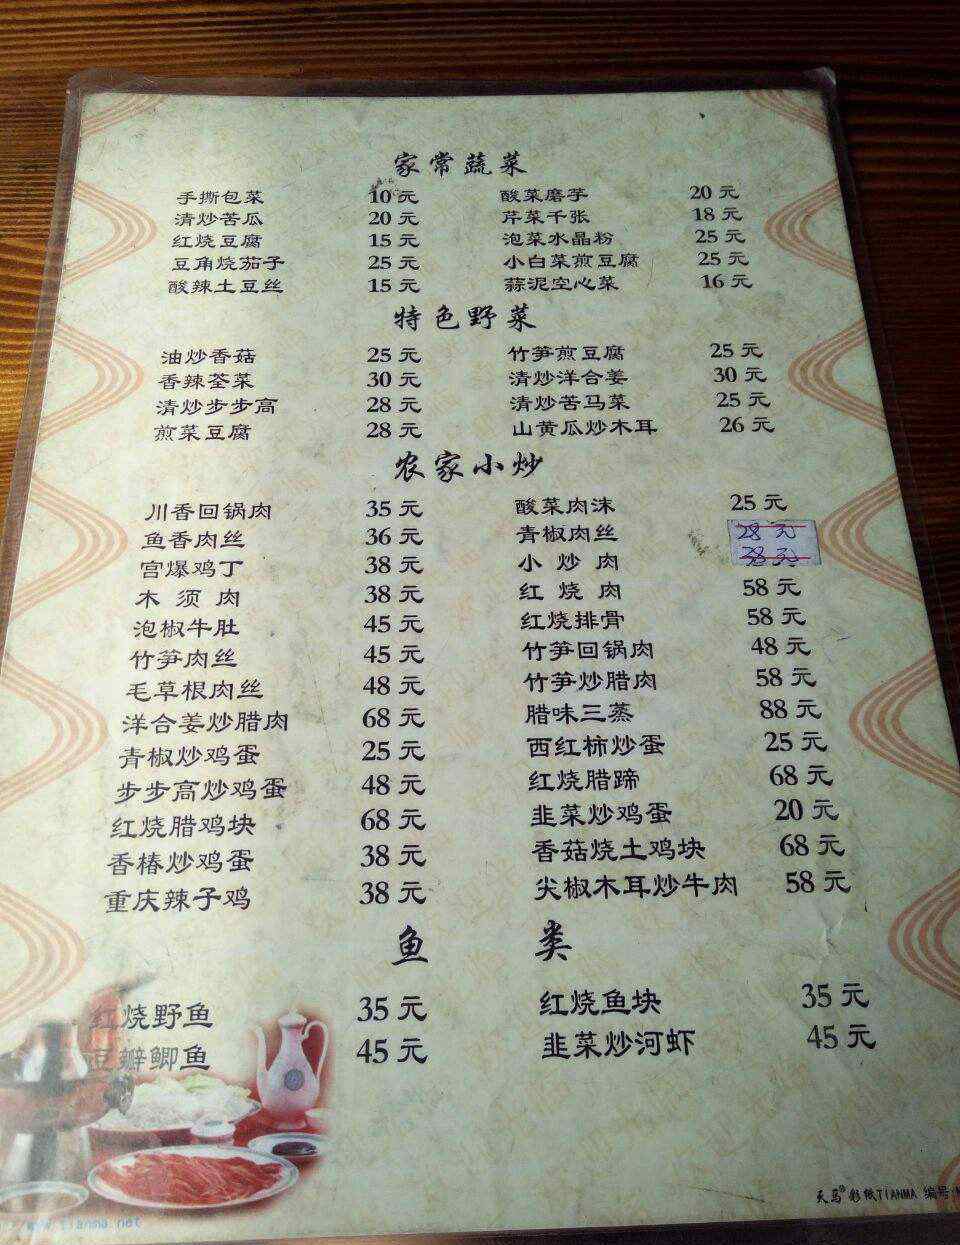 家常蔬菜
手撕包菜 10元 酸菜磨芋 20元
清炒苦瓜 20元 芹菜千张 18元
红烧豆腐 15元 泡菜水晶粉 25元
豆角烧茄子 25元 小白菜煎豆腐 25元
酸辣土豆丝 15元 蒜泥空心菜 16元
特色野菜
油炒香菇 25元 竹笋煎豆腐 25元
香辣荃菜 30元 清炒洋合姜 30元
清炒步步高 28元 清炒苦马菜 25元
煎菜豆腐 28元 山黄瓜炒木耳 26元
农家小炒
川香回锅肉 35元 酸菜肉沫 25元
鱼香肉丝 36元 青椒肉丝 28元
宫爆鸡丁 38元 小炒肉 38元
木须肉 38元 红烧肉 58元
泡椒牛肚 45元 红烧排骨 58元
竹笋肉丝 45元 竹笋回锅肉 48元
毛草根肉丝 48元 竹笋炒腊肉 58元
洋合姜炒腊肉 68元 腊味三蒸 88元
青椒炒鸡蛋 25元 西红柿炒蛋 25元
步步高炒鸡蛋 48元 红烧腊蹄 68元
红烧腊鸡块 68元 韭菜炒鸡蛋 20元
香椿炒鸡蛋 38元 香菇烧土鸡块 68元
重庆辣子鸡 38元 尖椒木耳炒牛肉 58元
鱼类
红烧野鱼 35元 红烧鱼块 35元
豆瓣鲫鱼 45元 韭菜炒河虾 45元
天马®彩纸TIANMA 编号:
www.tianma.net